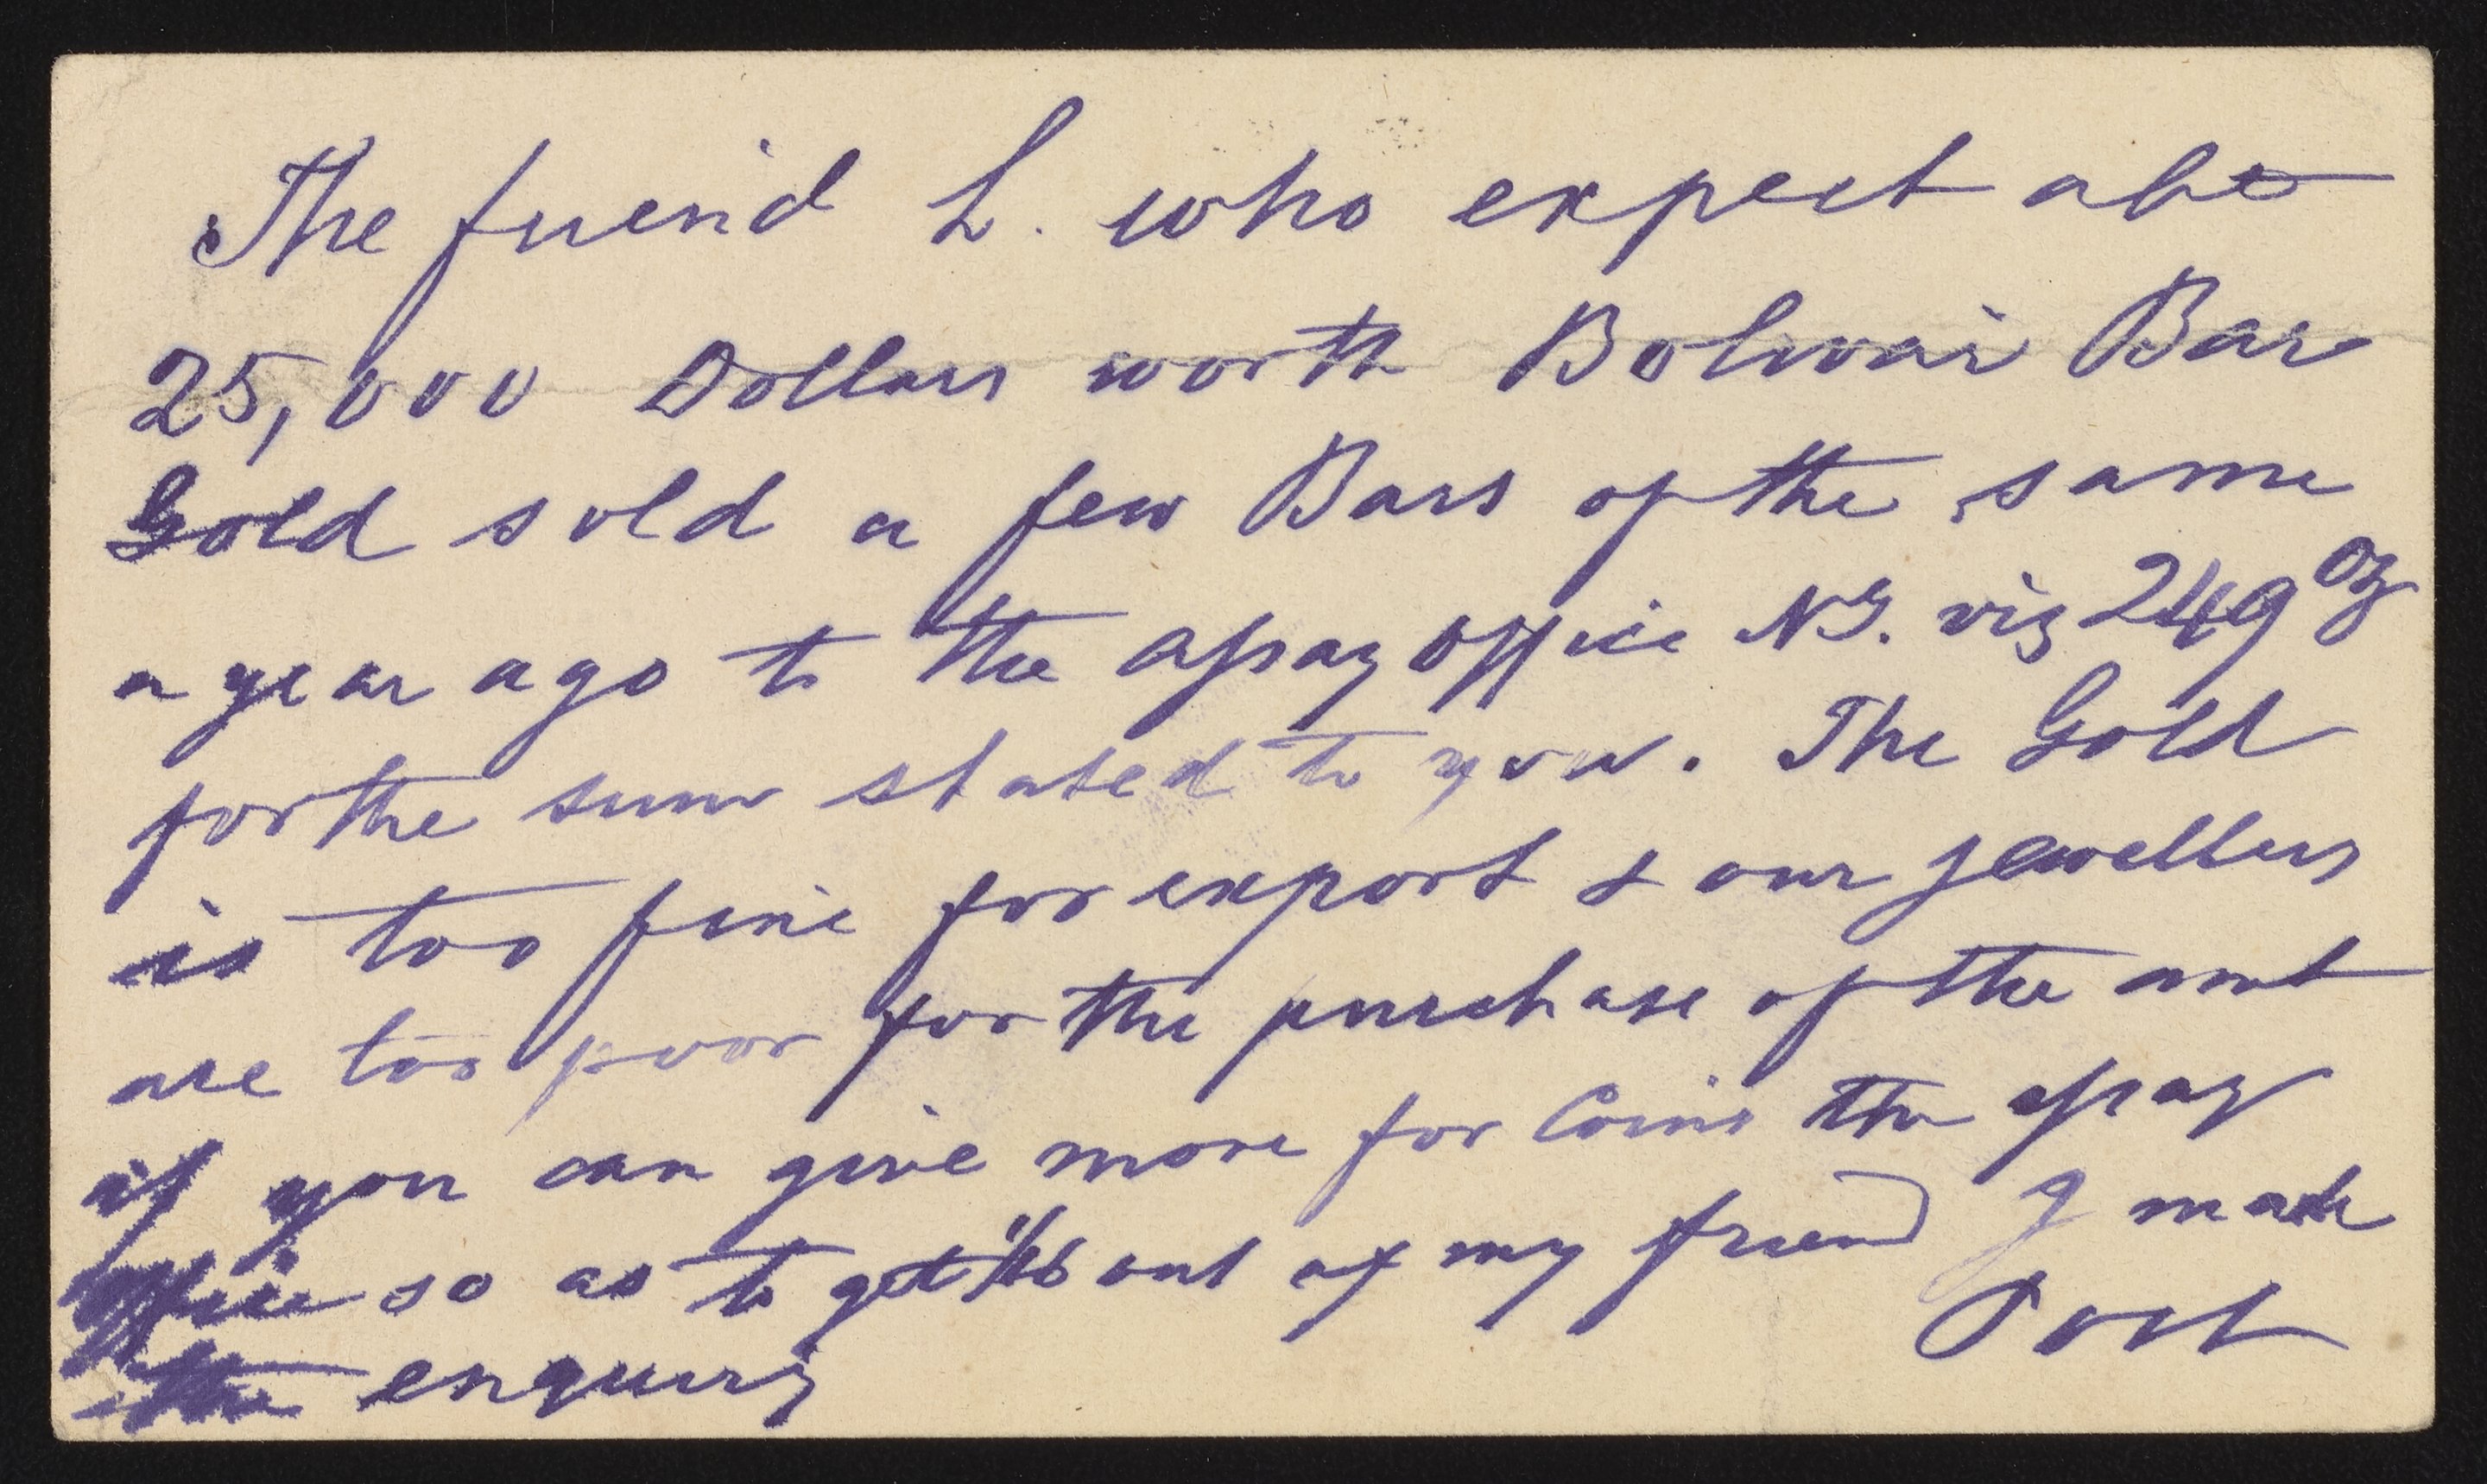 The friend L. who expect abt
25,000 Dollars worth Bolivar Bar
Gold sold a few Bars of the same
a year ago to the assay office NY. viz 249 oz
for the sum stated to you. The Gold
is too fine for export & our jewellers
are too poor for the purchase of the amt
if you can give more for Coins the assay
office so as to get out of my friend I made
the enquiry Post